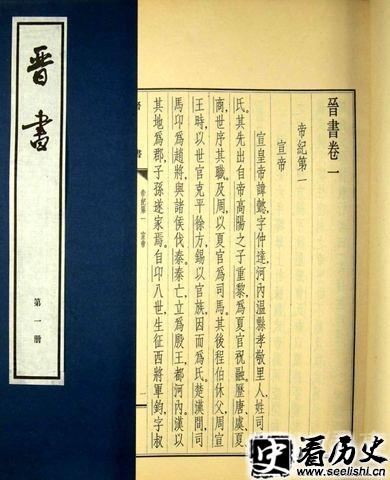 晉書
第一册
晉書卷一
帝紀第一
宣帝
宣皇帝諱懿字仲達河內温縣孝敬里人姓司馬
氏其先出自帝高陽之子重黎爲夏官祝融歷唐虞夏
商世序其職及周以夏官爲司馬其後程伯休父周宣
王時以世官克平徐方錫以官族因而爲氏楚漢間司
馬卬爲趙將與諸侯伐秦秦亡立爲殷王都河內漢以
其地爲郡子孫遂家焉自卬八世生征西將軍鈞字叔
帝紀第一 宣帝
一
史看历史
www.seelishi.cn